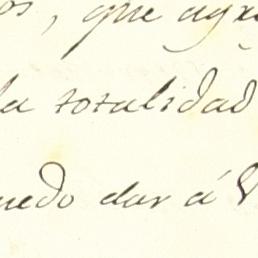 os, que agra
la totalidad
uedo dar á V